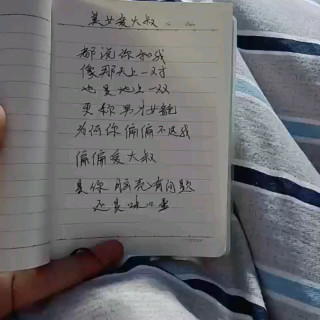 美女爱大叔
都说你和我
像那天上一对
也是地上一双
更称男才女貌
为何你偏偏不选我
偏偏爱大叔
是你脑壳有问题
还是味口重